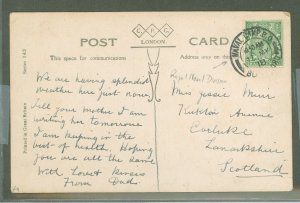 POST CARD
C.P.C.
LONDON.
This space for communications
Series 143
Printed in Great Britain
We are having splendid
weather here just now,
Tell your mother I am
writing her tomorrow
I am keeping in the
best of health. Hoping
you are all the same
With Love & Kisses
From Dad.
Royal Naval Division
Miss Jessie Muir
Avenue
Carluke
Lanarkshire
Scotland